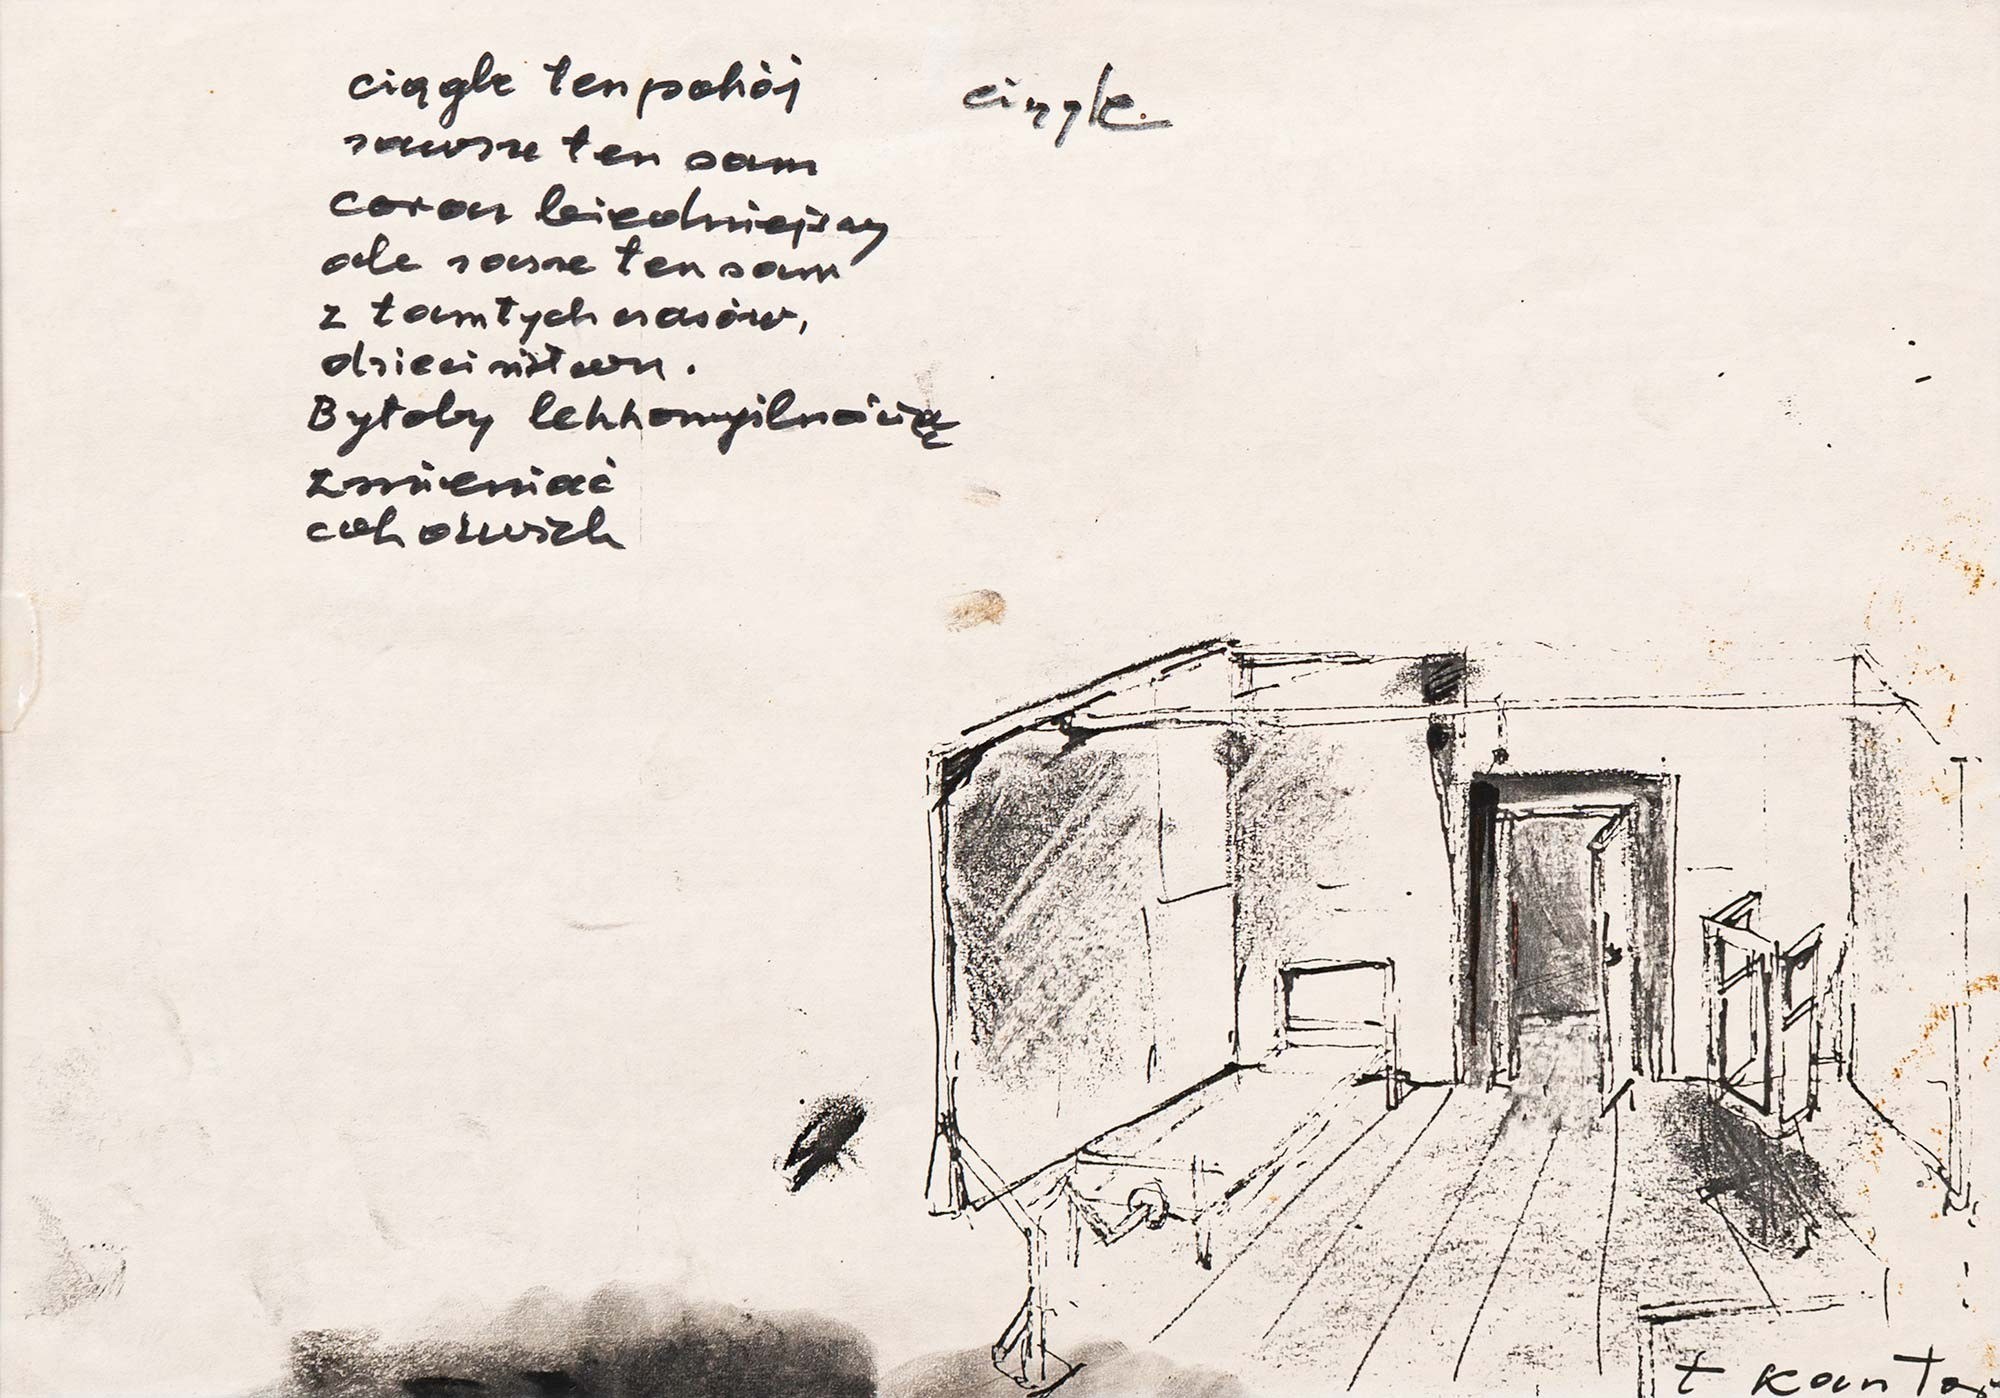 ciągle ten pokój
zawsze ten sam
coraz biedniejszy
ale zawsze ten sam
z tamtych czasów,
dzieciństwa.
Byłoby lekkomyślnością
zmieniać
cokolwiek
ciągle.
t Kantor